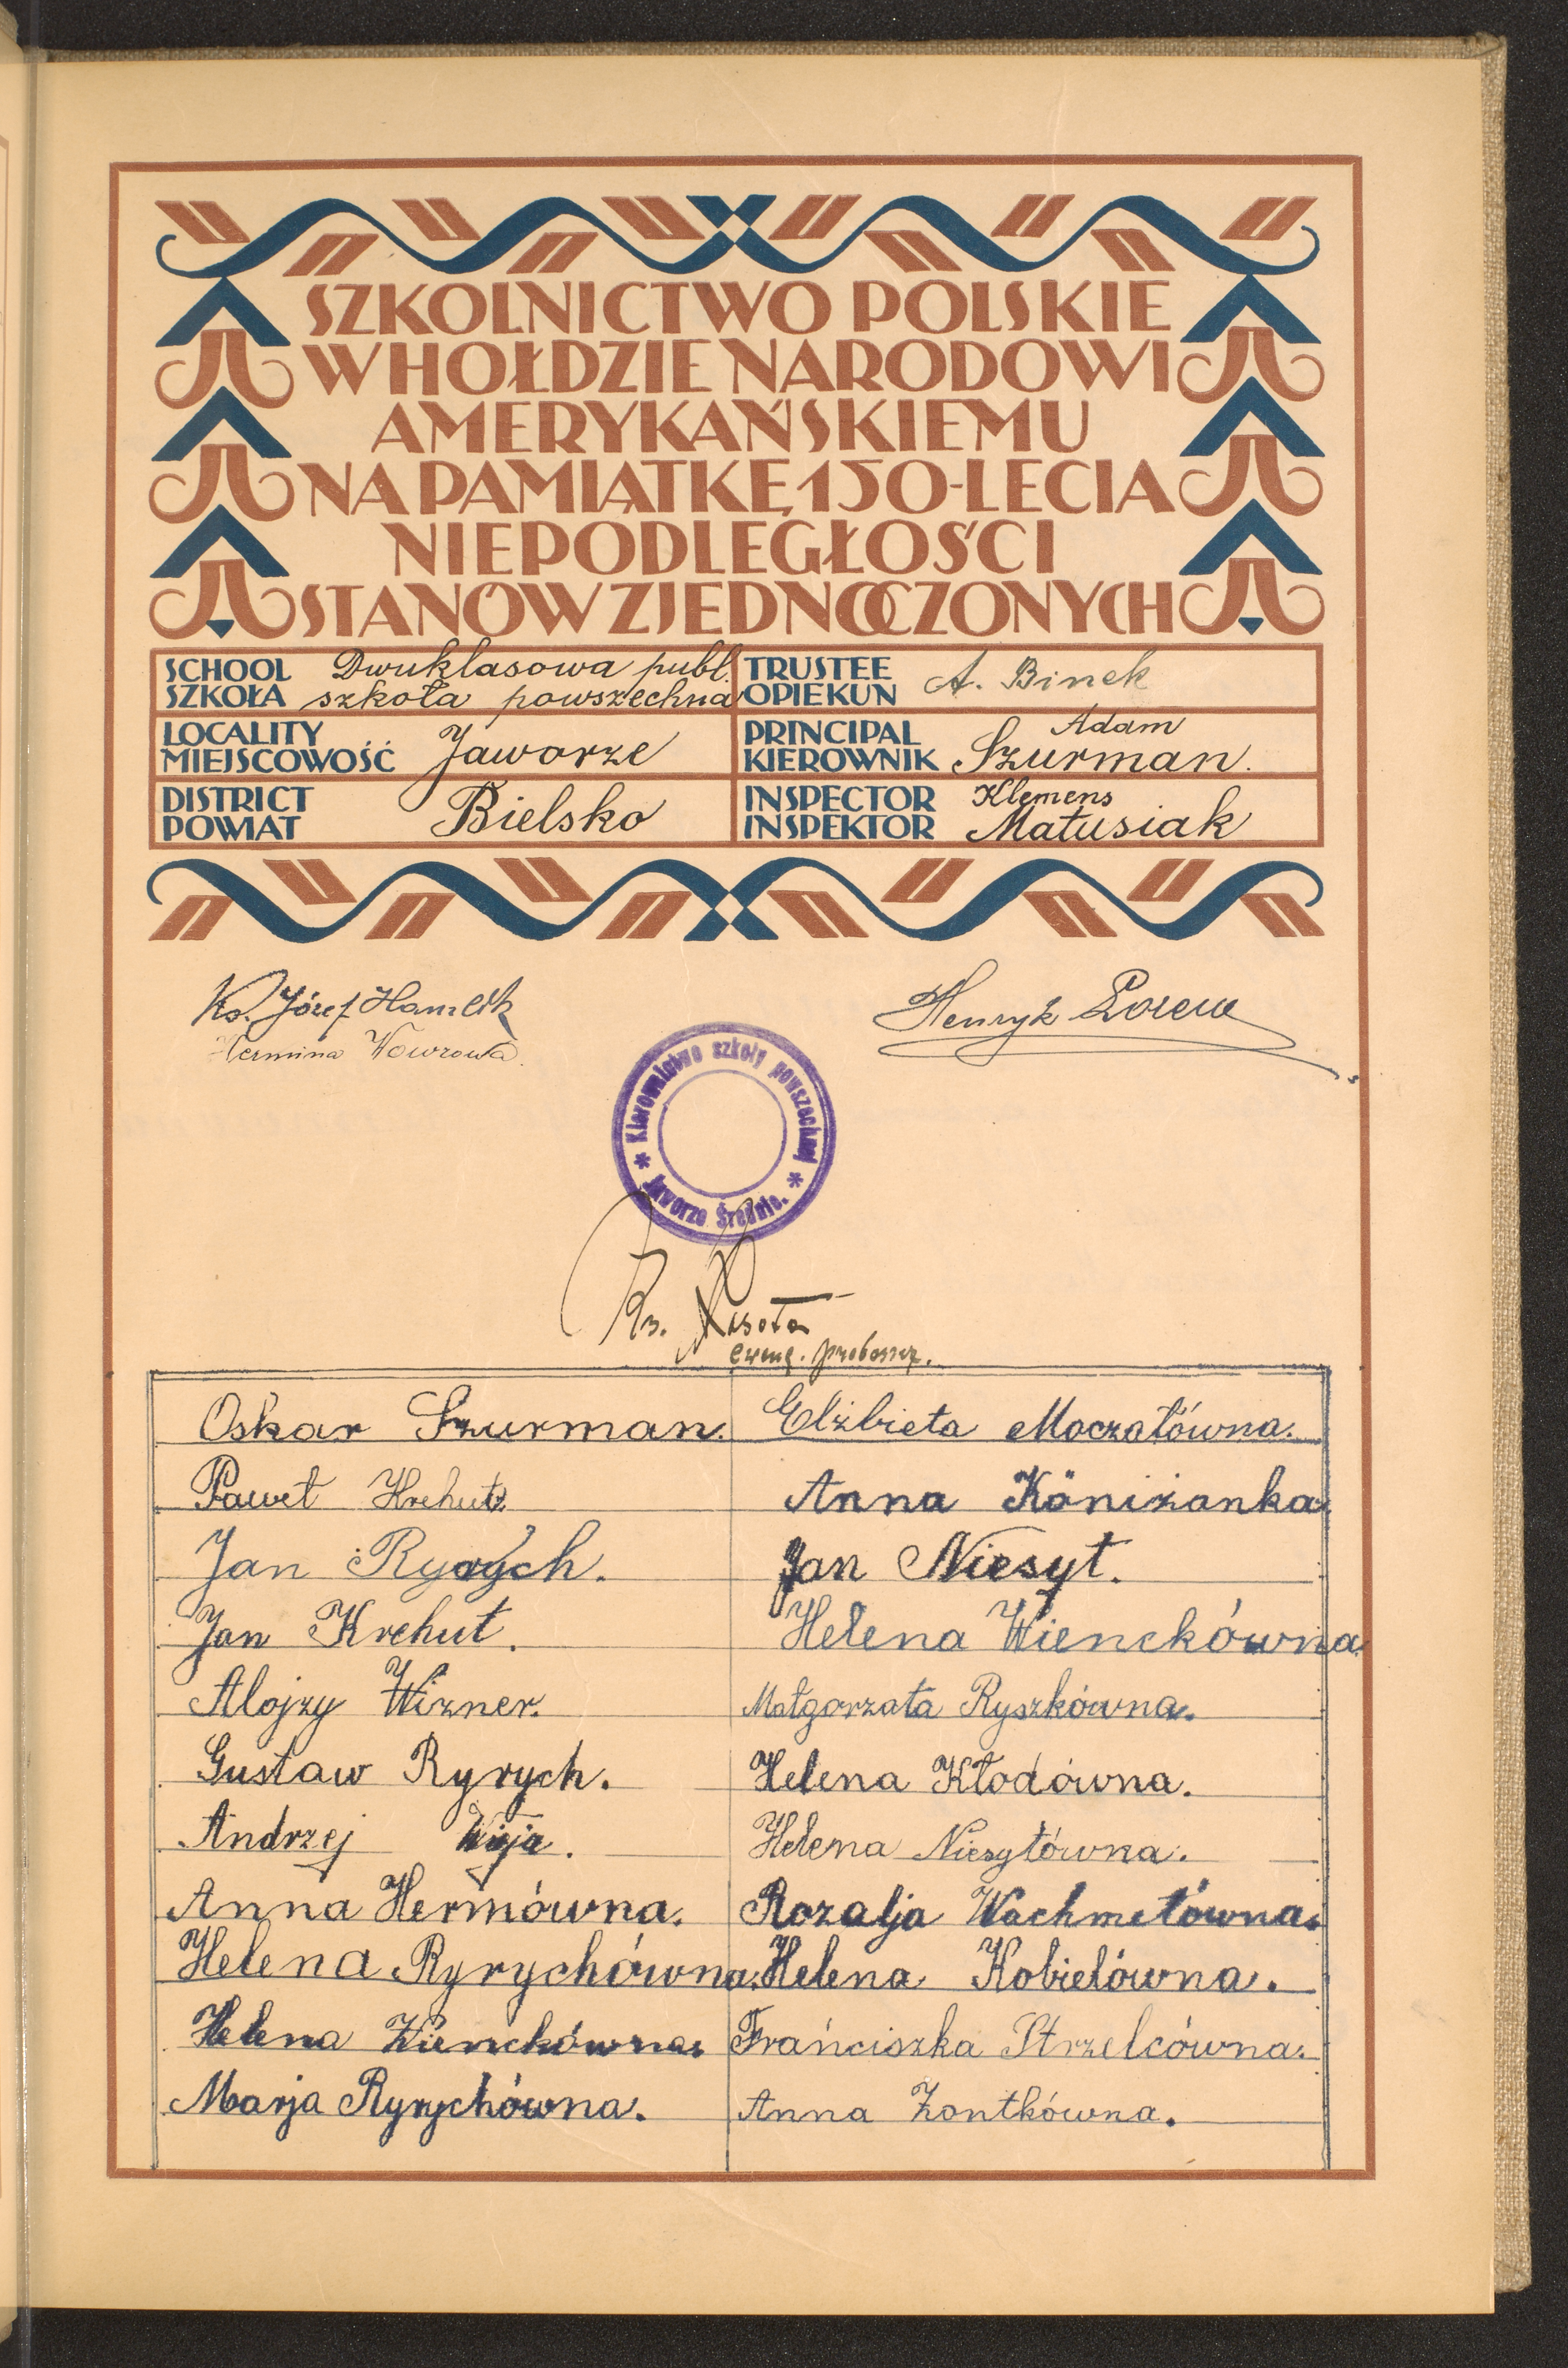 SZKOLNICTWO POLSKIE
W HOŁDZIE NARODOWI
AMERYKAŃSKIEMU
NA PAMIĄTKĘ 150-LECIA
NIEPODLEGŁOŚCI
STANÓW ZJEDNOCZONYCH
SCHOOL SZKOŁA Dwuklasowa publ. szkoła powszechna
TRUSTEE OPIEKUN A. Binek
LOCALITY MIEJSCOWOŚĆ Jaworze
PRINCIPAL KIEROWNIK Adam Szurman.
DISTRICT POWIAT Bielsko
INSPECTOR INSPEKTOR Klemens Matusiak
Ks. Józef
Hermina Wowrowa.
Henryk
* Kierownictwo szkoły powszechnej * Jaworze Średnie.
Ks.
Oskar Szurman.
Paweł
Jan Ryrych.
Jan Krehut.
Alojzy Wizner.
Gustaw Ryrych.
Andrzej
Anna Hermówna.
Helena Ryrychówna.
Helena Wienckówna.
Marja Ryrychówna.
Elżbieta Moczałówna.
Anna Köniżanka.
Jan Niesyt.
Helena Wienckówna.
Małgorzata Ryszkówna.
Helena Kłodówna.
Helena Niesytówna.
Rozalja Wachmetówna.
Helena Kobielówna.
Frańciszka Strzelcówna.
Anna Żontkówna.